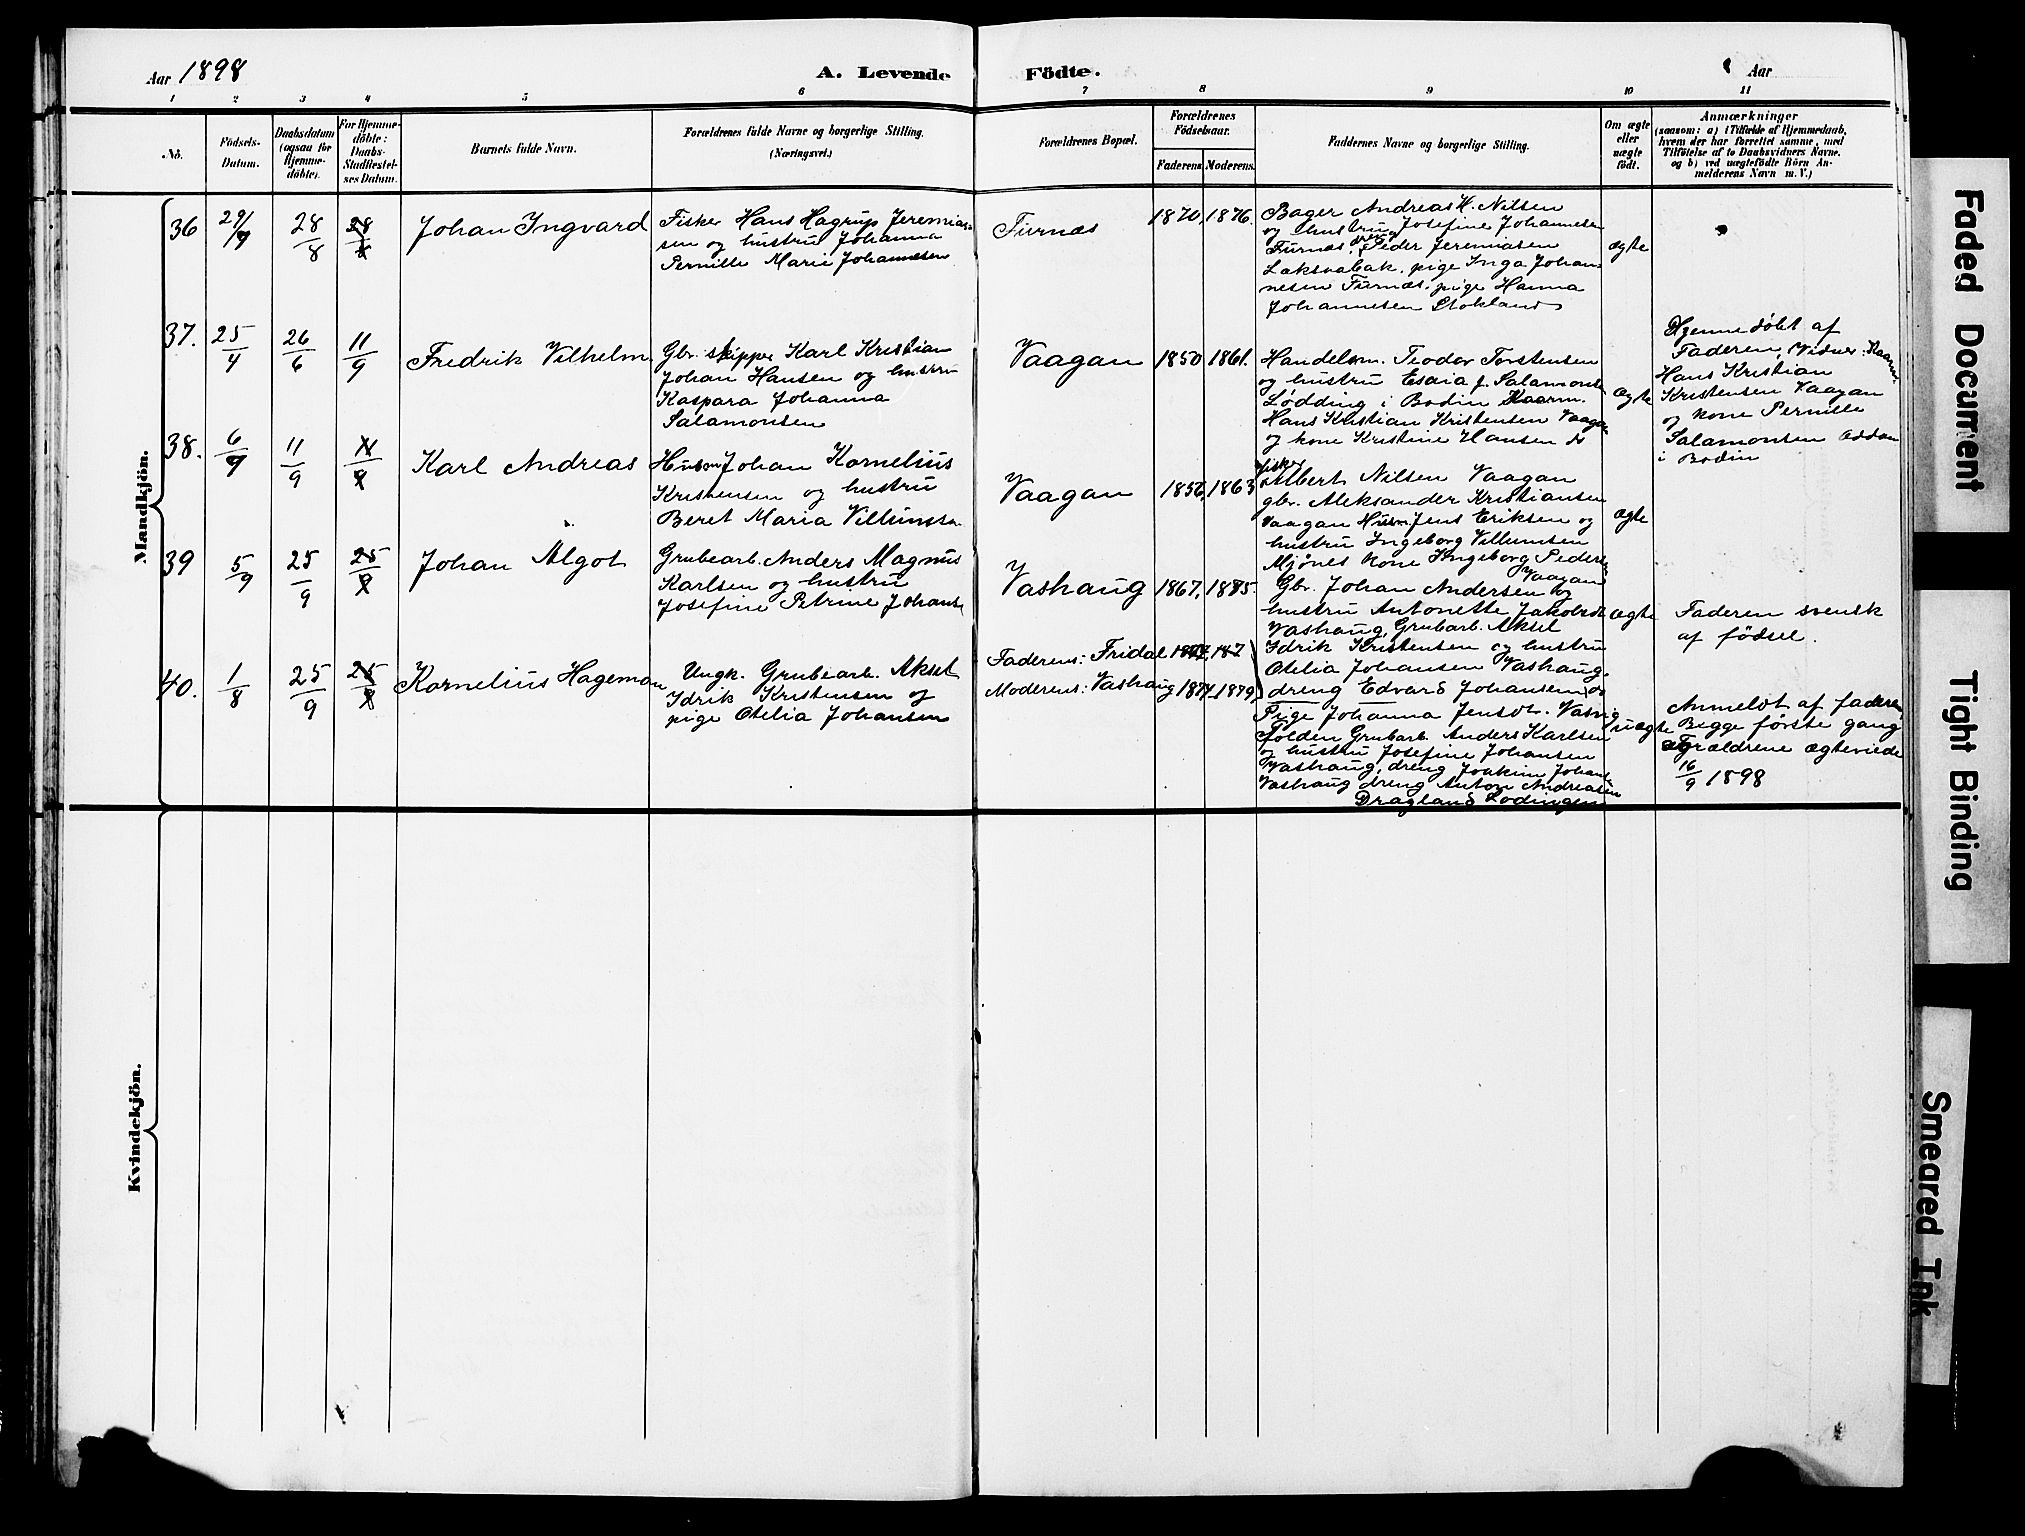 Aar 1898
A. Levende Födte.
Aar
1 2 3 4 5 6 7 8 9 10 11
No.
Födsels-
Datum.
Daabsdatum
(ogsaa for
Hjemme-
döbte).
For Hjemme-
döbte:
Daabs-
Stadfæstel-
ses Datum.
Barnets fulde Navn.
Forældrenes fulde Navne og borgerlige Stilling.
(Næringsvei.)
Forældrenes Bopæl.
Forældrenes
Födselsaar.
Faderens Moderens.
Faddernes Navne og borgerlige Stilling.
Om ægte
eller
uægte
födt.
Anmærkninger
(saasom: a) i Tilfælde af Hjemmedaab,
hvem der har forrettet samme, med
Tilföielse af to Daabsvidners Navne,
og b) ved uægtefödte Börn An-
melderens Navn m. V.)
Mandkjön.
36 29/9 28/8 28/8 Johan Ingvard
Fisker Hans Hagrup Jeremias-
sen og hustru Johanna
Pernille Marie Johannesen
Furnæs 1870, 1876.
Bager Andreas H. Nilsen
og hustru Josefine Johannesen
Furnæs. dreng Peder Jeremiasen
Laksaabak. pige Inga Johan-
nesen Furnæs. pige Hanna
Johannesen Stokland
ægte
37. 25/4 26/6 11/9 Fredrik Vilhelm
Gbr. skipper Karl Kristian
Johan Hansen og hustru
Kaspara Johanna
Salamonsen
Vaagan 1850 1861.
Handelsm. Teodor Torstensen
og hustru Esaia f. Salamonsen
Lødding i Bodin Kaarm.
Hans Kristian Kristensen Vaagan
og kone Kristine Hansen ds
ægte
Hjemmedøbt af
Faderen, Vidner: Kaarm.
Hans Kristian
Kristensen Vaagan
og kone Pernille
Salamonsen Oddan
i Bodin
38. 6/9 11/9 11/9 Karl Andreas
Husm Johan Kornelius
Kristensen og hustru
Beret Maria Villumsen
Vaagan 1856, 1863
fisker
Albert Nilsen Vaagan
gbr. Aleksander Kristiansen
Vaagan Husm Jens Eriksen og
hustru Ingeborg Villumsen
Mjønes kone Ingeborg Pedersen
Vaagan
ægte
39 5/9 25/9 25/9 Johan Algot
Grubearb. Anders Magnus
Karlsen og hustru
Josefine Petrine Johans.
Vashaug 1867, 1875.
Gbr. Johan Andersen og
hustru Antonette Jakobsdt
Vashaug, Grubarb. Aksel
Idrik Kristensen og hustru
Otelia Johansen Vashaug.
dreng Edvard Johansen ds
ægte
Faderen svensk
af fødsel.
40. 1/8 25/9 25/9 Kornelius Hageman
Ungk. Grubearb. Aksel
Idrik Kristensen og
pige Otelia Johansen
Faderens: Fridal
Moderens: Vashaug 1874, 1879,
Pige Johanna Jensdt. Vasvig
Folden Grubarb. Anders Karlsen
og hustru Josefine Johansen
Vashaug, dreng Joakim Johans.
Vashaug dreng Anton Andreasen
Dragland Lødingen
uægte
Anmeldt af faderen
Begge første gang
Forældrene ægteviede
16/9 1898
Kvindekjön.
Faded Document
Tight Binding
Smeared Ink